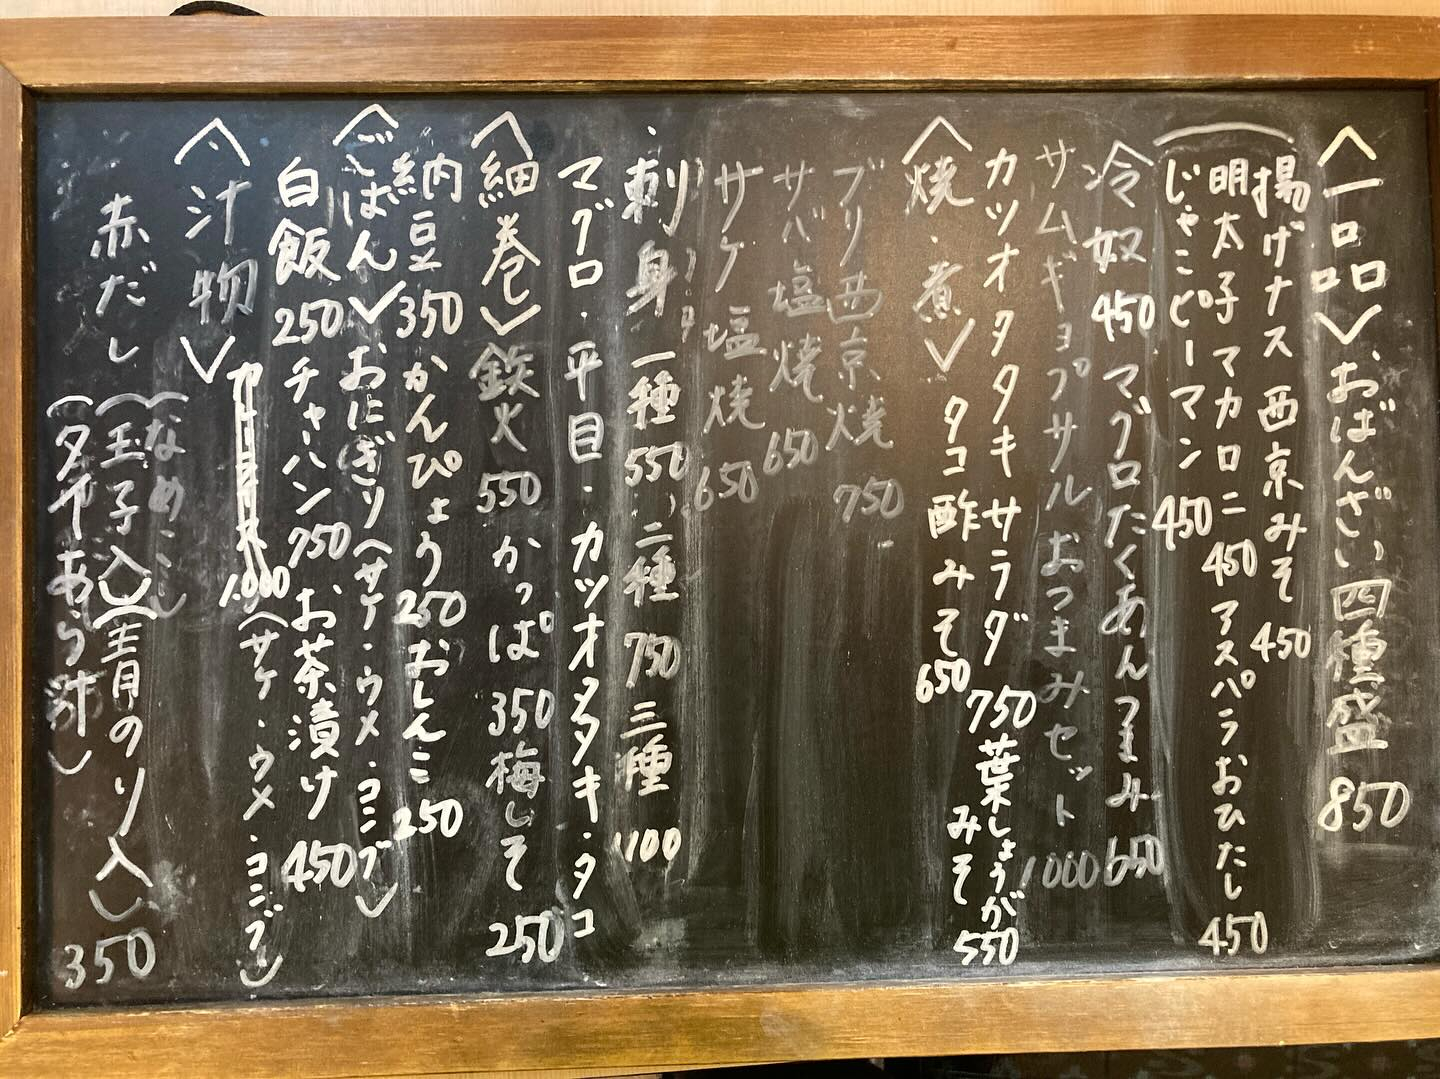 〈一品〉おばんざい四種盛 850
揚げナス西京みそ 450
明太子マカロニ 450 アスパラおひたし 450
じゃこピーマン 450
冷奴 450 マグロたくあんつまみ 650
サムギョプサルおつまみセット 1000
カツオタタキサラダ 750 葉しょうがみそ 550
〈焼・煮〉タコ酢みそ 650
ブリ西京焼 750
サバ塩焼 650
サケ塩焼 650
刺身 一種 550 二種 750 三種 1100
マグロ・平目・カツオタタキ・タコ
〈細巻〉鉄火 550 かっぱ 350 梅しそ 250
納豆 350 かんぴょう 250 おしんこ 250
〈ごはん〉おにぎり(サケ・ウメ・コンブ)
白飯 250 チャーハン 750 お茶漬け 450
1,000 (サケ・ウメ・コンブ)
〈汁物〉
赤だし (なめこ)
(玉子入)(青のり入) 350
(タイあら汁)